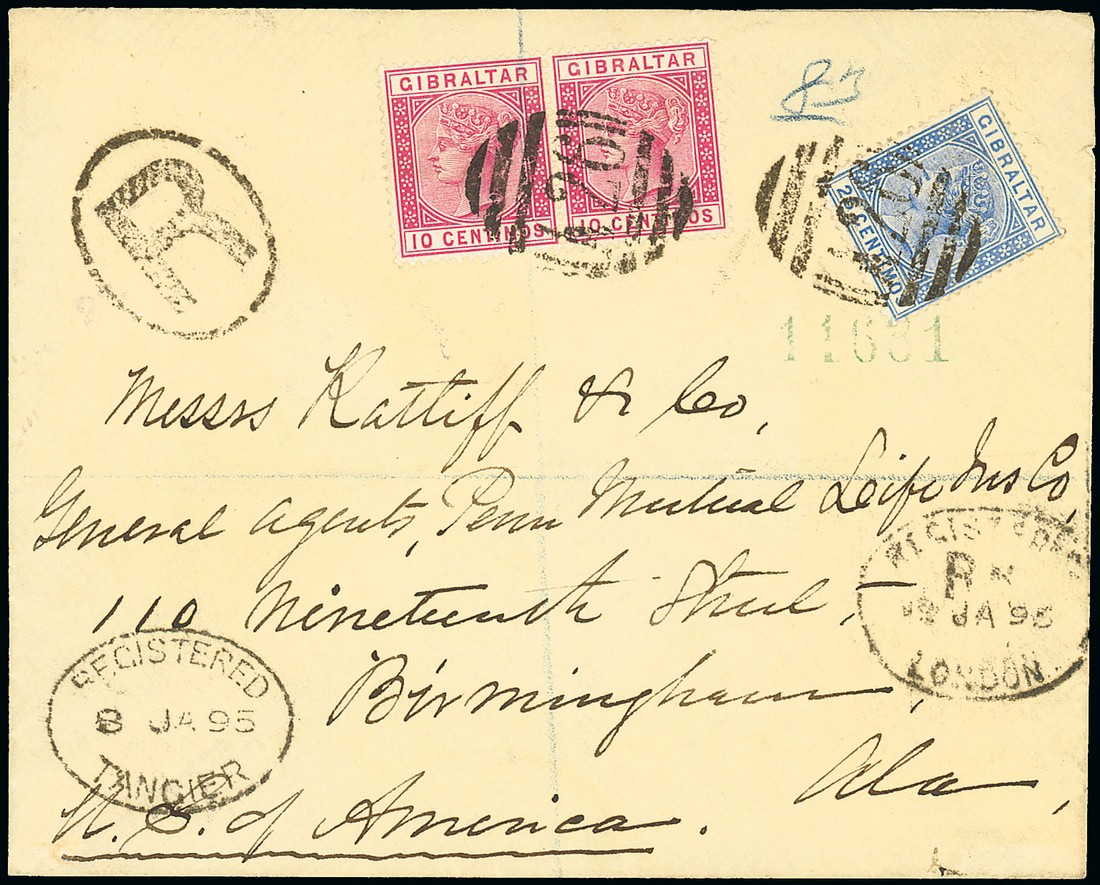 GIBRALTAR
10 CENTIMOS
GIBRALTAR
10 CENTIMOS
GIBRALTAR
CENTIMOS
83
A26
R
11631
Messrs Rattiff & Co,
General Agents, Penn Mutual Life Ins Co,
110 Nineteenth Street,
Birmingham,
Ala,
U.S. of America.
REGISTERED
8 JA 95
TANGIER
REGISTERED
JA 95
LONDON